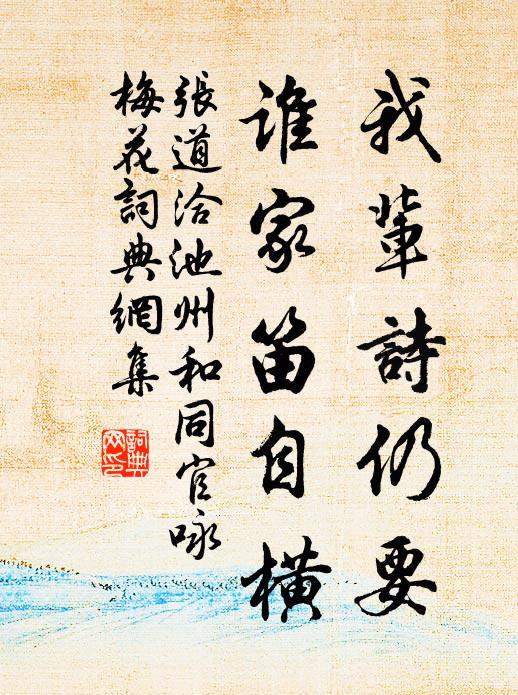 我輩詩仍要
誰家笛自橫
張道洽池州和同官咏
梅花詞典網集
詞典网印